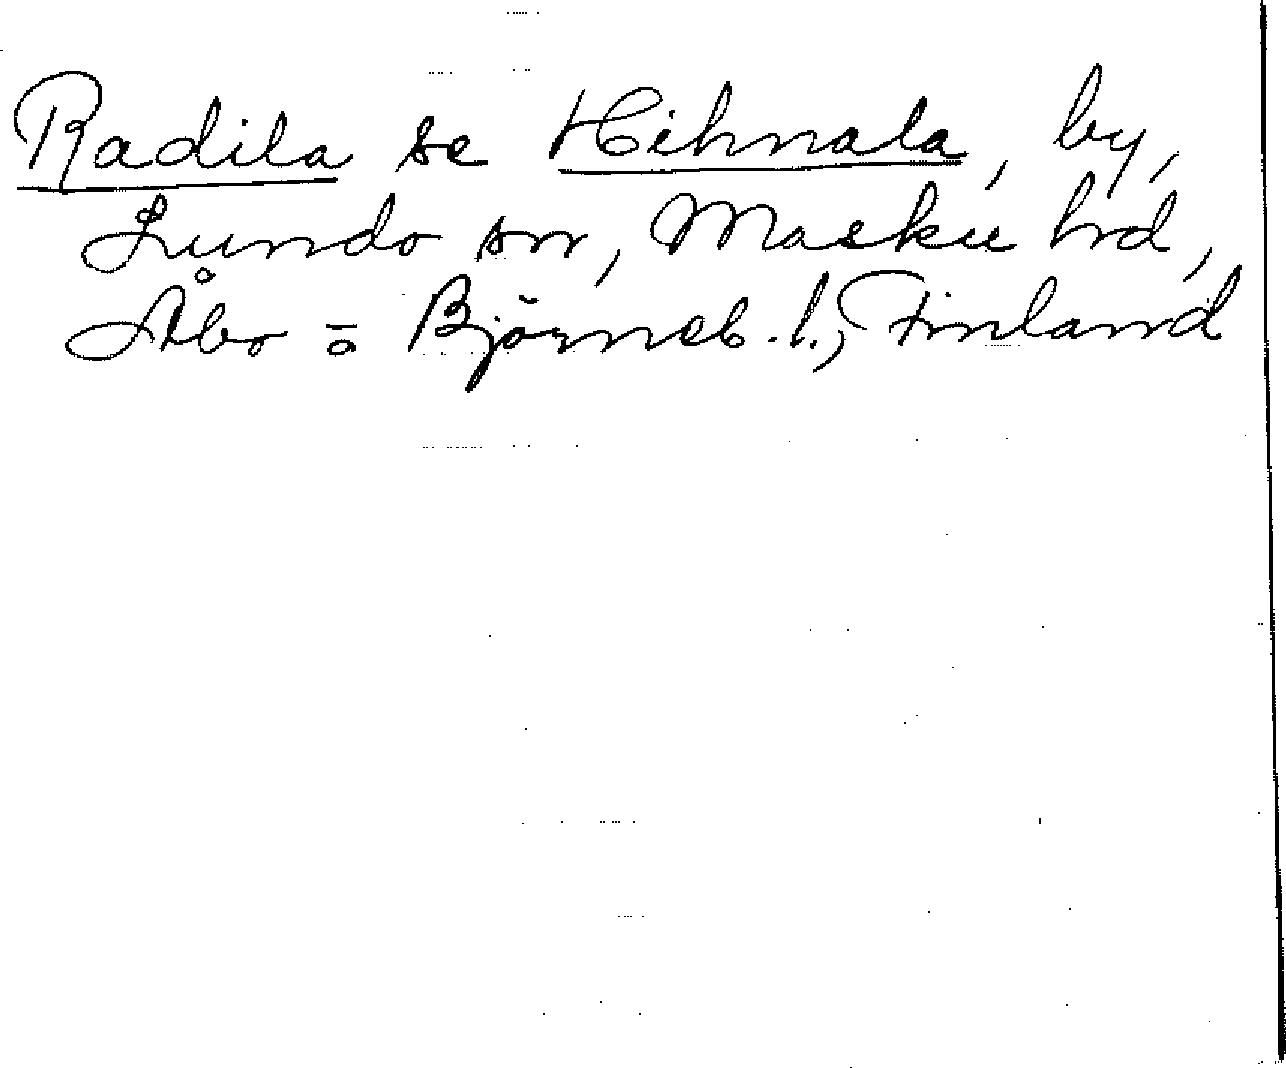 Radila se Hihnala, by,
Lundo sn, Masku hrd,
Åbo = o Björneb. l., Finland